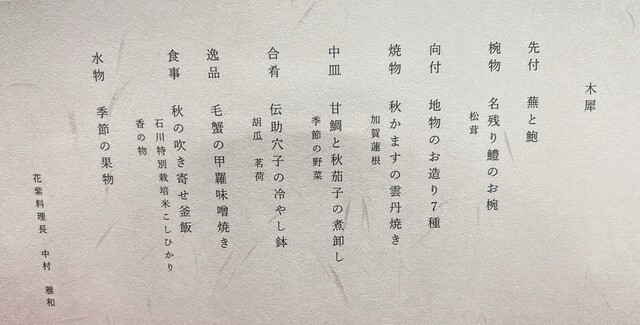 木犀
先付　蕪と鮑
椀物　名残り鱧のお椀
松茸
向付　地物のお造り7種
焼物　秋かますの雲丹焼き
加賀蓮根
中皿　甘鯛と秋茄子の煮卸し
季節の野菜
合肴　伝助穴子の冷やし鉢
胡瓜　茗荷
逸品　毛蟹の甲羅味噌焼き
食事　秋の吹き寄せ釜飯
石川特別栽培米こしひかり
香の物
水物　季節の果物
花紫料理長　中村　雅和